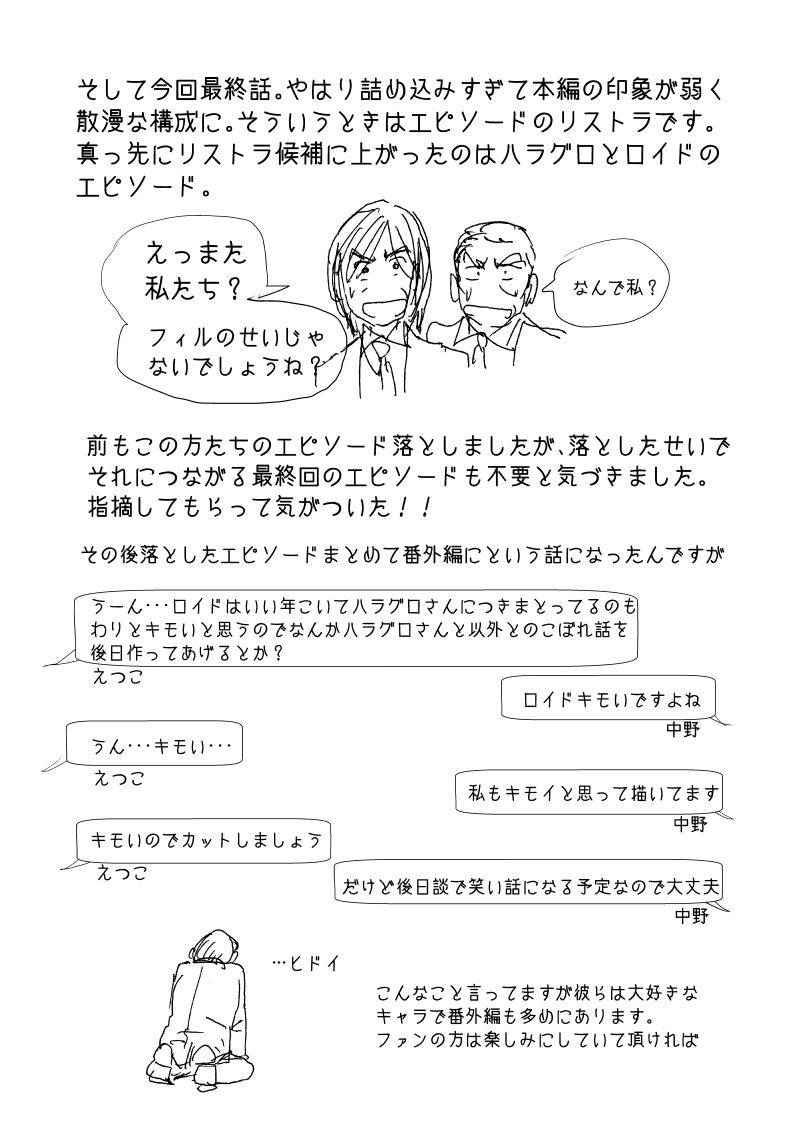 そして今回最終話。やはり詰め込みすぎて本編の印象が弱く
散漫な構成に。そういうときはエピソードのリストラです。
真っ先にリストラ候補に上がったのはハラグロとロイドの
エピソード。
えっまた
私たち？
なんで私？
フィルのせいじゃ
ないでしょうね？
前もこの方たちのエピソード落としましたが、落としたせいで
それにつながる最終回のエピソードも不要と気づきました。
指摘してもらって気がついた！！
その後落としたエピソードまとめて番外編にという話になったんですが
うーん・・・ロイドはいい年こいてハラグロさんにつきまとってるのも
わりとキモいと思うのでなんかハラグロさんと以外とのこぼれ話を
後日作ってあげるとか？
えつこ
ロイドキモいですよね
中野
うん・・・キモい・・・
えつこ
私もキモイと思って描いてます
中野
キモいのでカットしましょう
えつこ
だけど後日談で笑い話になる予定なので大丈夫
中野
…ヒドイ
こんなこと言ってますが彼らは大好きな
キャラで番外編も多めにあります。
ファンの方は楽しみにしていて頂ければ